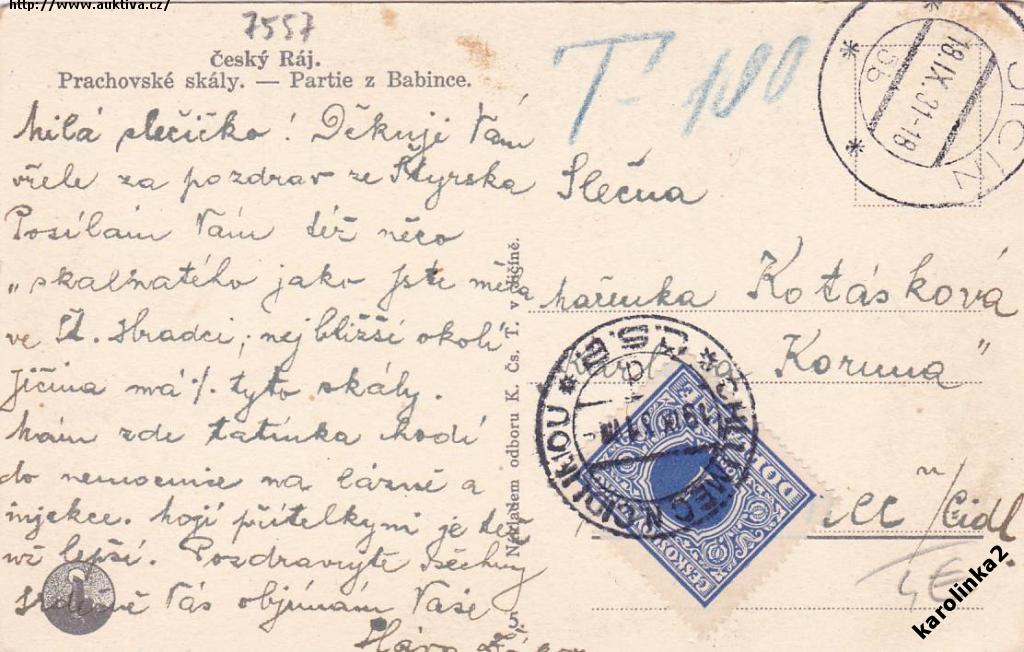 http://www.auktiva.cz/
7557
Český Ráj.
Prachovské skály. — Partie z Babince.
T 100
JIČÍN
18.IX.31-18
* 5b *
Milá slečičko! Děkuji Vám
vřele za pozdrav ze
Posílám Vám též něco
„skalnatého jako jste měla
ve Hradci, nejbližší okolí
Jičína má /. tyto skály.
Mám zde tatínka chodí
do nemocnice na lázně a
injekce. Mojí přítelkyni je též
už lepší. Pozdravujte všechny
srdečně Vás objímám Vaše
Slečna
Mařenka Kotásková
Koruna"
n/Cidl.
Nákladem odboru K. Čs. T. v Jičíně.
* CHLUMEC N. CIDLINOU * Č.S.R.
DOPLATIT
ČESKOSLOVENSKO
karolinka2